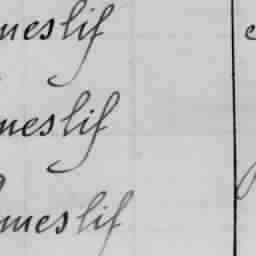 meslif
meslif
meslif